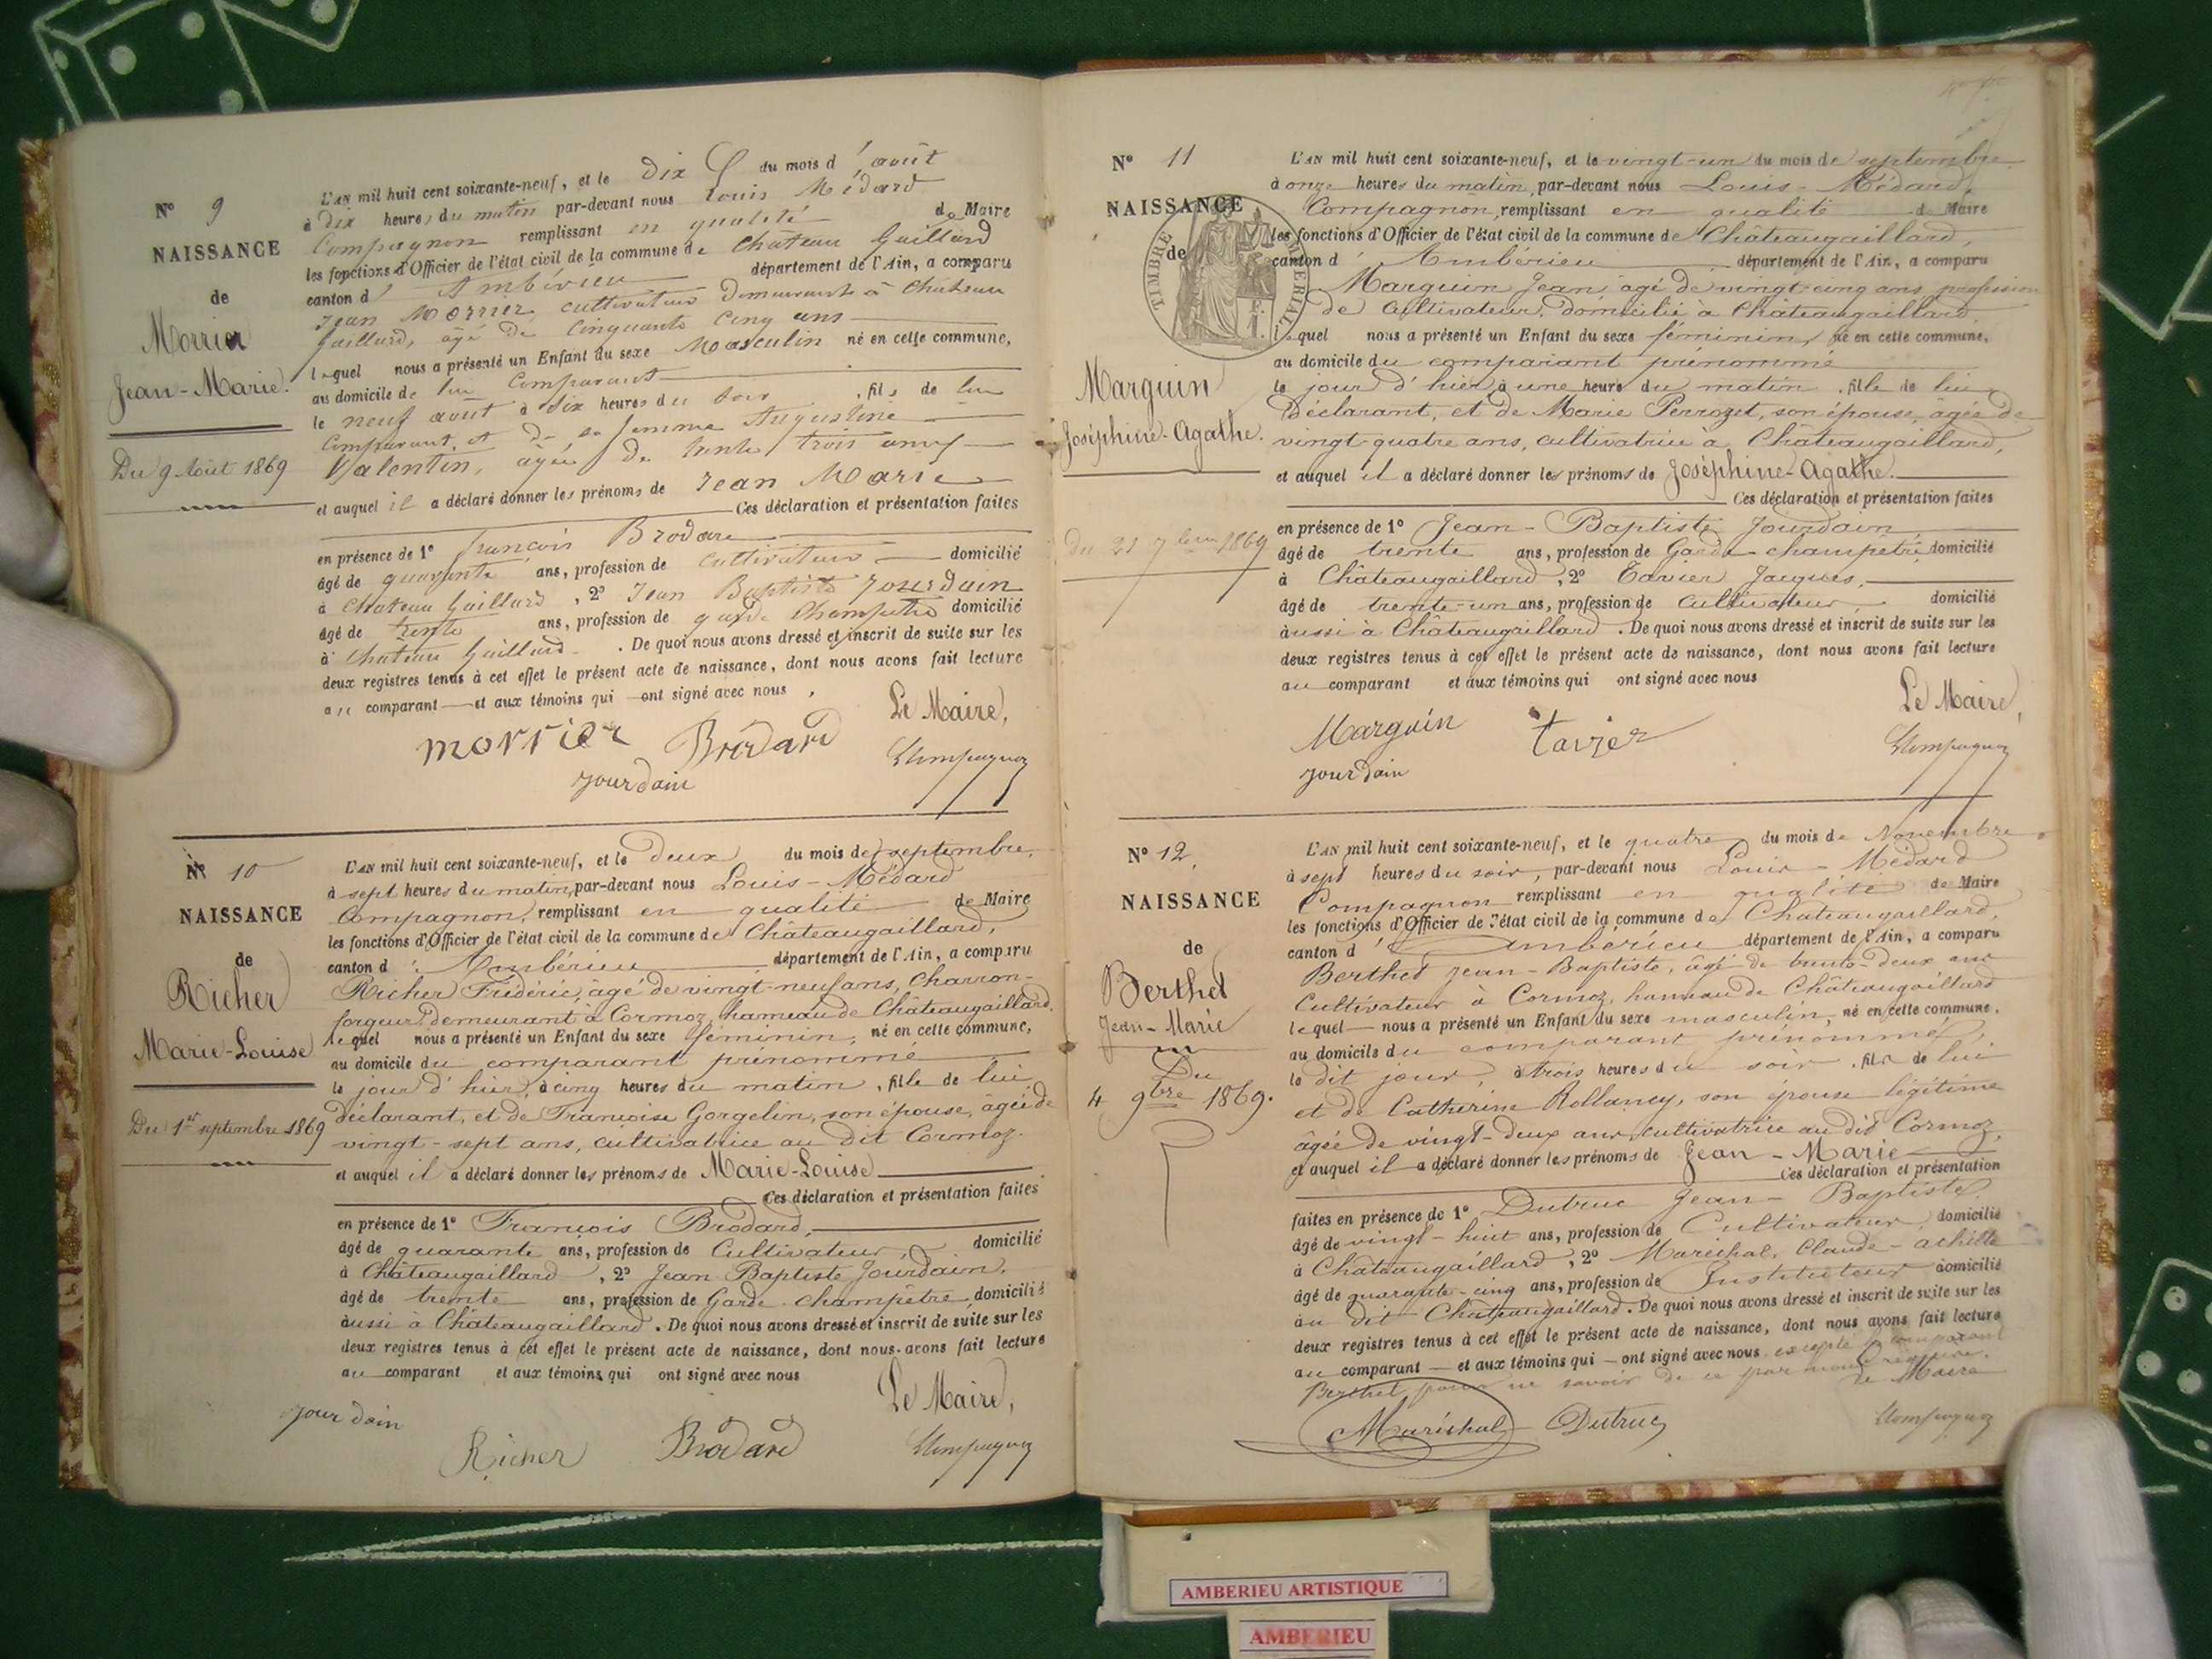 N° 9
NAISSANCE
de
Morrier
Jean-Marie.
Du 9 Août 1869
L'AN mil huit cent soixante-neuf, et le dix du mois d'août
à dix heures du matin par-devant nous Louis Médard
Compagnon remplissant en qualité de Maire
les fonctions d'Officier de l'état civil de la commune de Château Gaillard
canton d'Ambérieu département de l'Ain, a comparu
Jean Morrier cultivateur demeurant à Château
Gaillard, âgé de Cinquante Cinq ans
lequel nous a présenté un Enfant du sexe Masculin né en cette commune,
au domicile de lui Comparant
le neuf août à dix heures du soir, fils de lui
Comparant et de sa femme Augustine
Valentin, âgée de trente trois ans
et auquel il a déclaré donner les prénoms de Jean Marie
Ces déclaration et présentation faites
en présence de 1° François Brodare
âgé de quarante ans, profession de Cultivateur domicilié
à Château Gaillard, 2° Jean Baptiste Jourdain
âgé de trente ans, profession de garde Champêtre domicilié
à Château Gaillard. De quoi nous avons dressé et inscrit de suite sur les
deux registres tenus à cet effet le présent acte de naissance, dont nous avons fait lecture
au comparant et aux témoins qui ont signé avec nous,
Le Maire,
morrier Brodard
Jourdain
LCompagnon
N° 10
NAISSANCE
de
Richer
Marie-Louise
Du 1er septembre 1869
L'AN mil huit cent soixante-neuf, et le deux du mois de septembre,
à sept heures du matin, par-devant nous Louis-Médard
Compagnon, remplissant en qualité de Maire
les fonctions d'Officier de l'état civil de la commune de Châteaugaillard,
canton d'Ambérieu département de l'Ain, a comparu
Richer Frédéric, âgé de vingt-neuf ans, Charron-
forgeur demeurant à Cormoz, hameau de Châteaugaillard,
lequel nous a présenté un Enfant du sexe féminin, né en cette commune,
au domicile du comparant prénommé
le jour d'hier, à cinq heures du matin, fille de lui
déclarant, et de Françoise Gorgelin, son épouse, âgée de
vingt-sept ans, cultivatrice au dit Cormoz.
et auquel il a déclaré donner les prénoms de Marie-Louise
Ces déclaration et présentation faites
en présence de 1° François Brodard,
âgé de quarante ans, profession de Cultivateur, domicilié
à Châteaugaillard, 2° Jean Baptiste Jourdain,
âgé de trente ans, profession de Garde-champêtre domicilié
aussi à Châteaugaillard. De quoi nous avons dressé et inscrit de suite sur les
deux registres tenus à cet effet le présent acte de naissance, dont nous avons fait lecture
au comparant et aux témoins qui ont signé avec nous
Le Maire,
Jourdain
Richer Brodard LCompagnon
N° 11
NAISSANCE
de
TIMBRE IMPERIAL
Marguin
Joséphine-Agathe.
Du 21 7bre 1869
L'AN mil huit cent soixante-neuf, et le vingt-un du mois de septembre
à onze heures du matin, par-devant nous Louis-Médard,
Compagnon, remplissant en qualité de Maire
les fonctions d'Officier de l'état civil de la commune de Châteaugaillard,
canton d'Ambérieu département de l'Ain, a comparu
Marguin Jean âgé de vingt-cinq ans profession
de Cultivateur, domicilié à Châteaugaillard,
lequel nous a présenté un Enfant du sexe féminin, né en cette commune,
au domicile du comparant prénommé
le jour d'hier à une heure du matin, fille de lui
déclarant, et de Marie Perrozet, son épouse, âgée de
vingt-quatre ans, cultivatrice à Châteaugaillard,
et auquel il a déclaré donner les prénoms de Joséphine-Agathe.
Ces déclaration et présentation faites
en présence de 1° Jean-Baptiste Jourdain
âgé de trente ans, profession de Garde-champêtre, domicilié
à Châteaugaillard, 2° Tavier Jacques,
âgé de trente-un ans, profession de Cultivateur, domicilié
aussi à Châteaugaillard. De quoi nous avons dressé et inscrit de suite sur les
deux registres tenus à cet effet le présent acte de naissance, dont nous avons fait lecture
au comparant et aux témoins qui ont signé avec nous
Le Maire,
Marguin Tavier
Jourdain
LCompagnon
N° 12,
NAISSANCE
de
Berthet
Jean-Marie
Du
4 9bre 1869.
L'AN mil huit cent soixante-neuf, et le quatre du mois de Novembre
à sept heures du soir, par-devant nous Louis-Médard
Compagnon remplissant en qualité de Maire
les fonctions d'Officier de l'état civil de la commune de Châteaugaillard,
canton d'Ambérieu département de l'Ain, a comparu
Berthet Jean-Baptiste, âgé de trente-deux ans
Cultivateur à Cormoz, hameau de Châteaugaillard
lequel nous a présenté un Enfant du sexe masculin, né en cette commune,
au domicile du comparant prénommé,
le dit jour, à trois heures du soir, fils de lui
et de Catherine Rollancy, son épouse légitime
âgée de vingt-deux ans, cultivatrice au dit Cormoz,
et auquel il a déclaré donner les prénoms de Jean-Marie
Ces déclaration et présentation
faites en présence de 1° Dutruc Jean-Baptiste,
âgé de vingt-huit ans, profession de Cultivateur, domicilié
à Châteaugaillard, 2° Maréchal, Claude-achille
âgé de quarante-cinq ans, profession de Instituteur domicilié
au dit Châteaugaillard. De quoi nous avons dressé et inscrit de suite sur les
deux registres tenus à cet effet le présent acte de naissance, dont nous avons fait lecture
au comparant et aux témoins qui ont signé avec nous excepté le comparant
Berthet pour ne savoir de ce par nous requis.
Le Maire
Maréchal Dutruc LCompagnon
AMBERIEU ARTISTIQUE
AMBERIEU